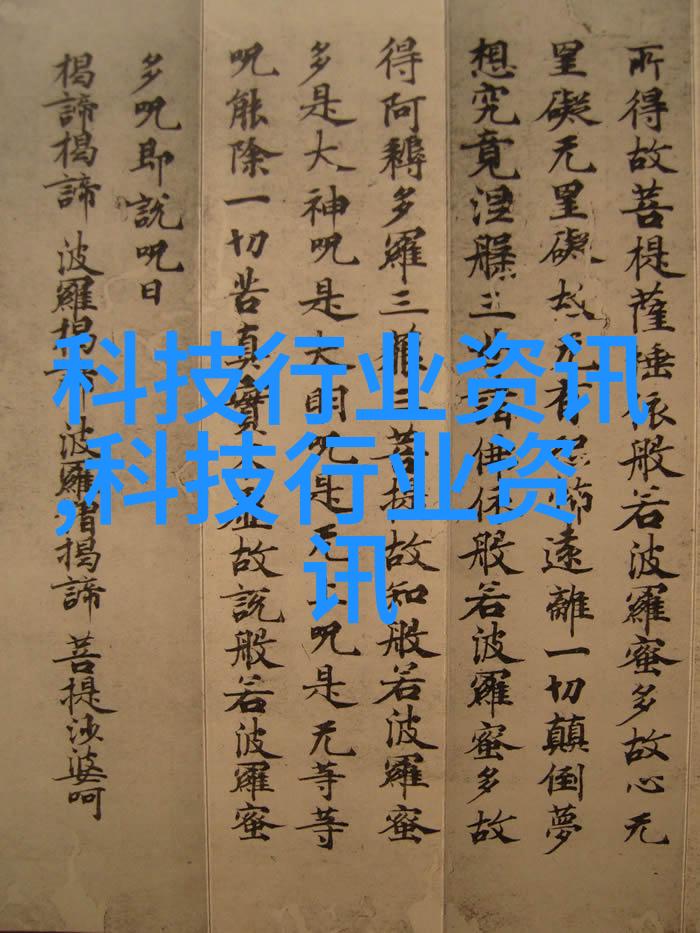 所得故菩提薩埵依般若波羅蜜多故心无
罣礙无罣礙故无有恐怖遠離一切顛倒夢
想究竟涅槃三世諸佛依般若波羅蜜多故
得阿耨多羅三藐三菩提故知般若波羅蜜
多是大神呪是大明呪是无上呪是无等等
呪能除一切苦真實虛故說般若波羅蜜
多呪即說呪曰
揭諦揭諦 波羅揭諦 波羅僧揭諦 菩提沙婆呵
科技行业资讯
,科技行业资
讯